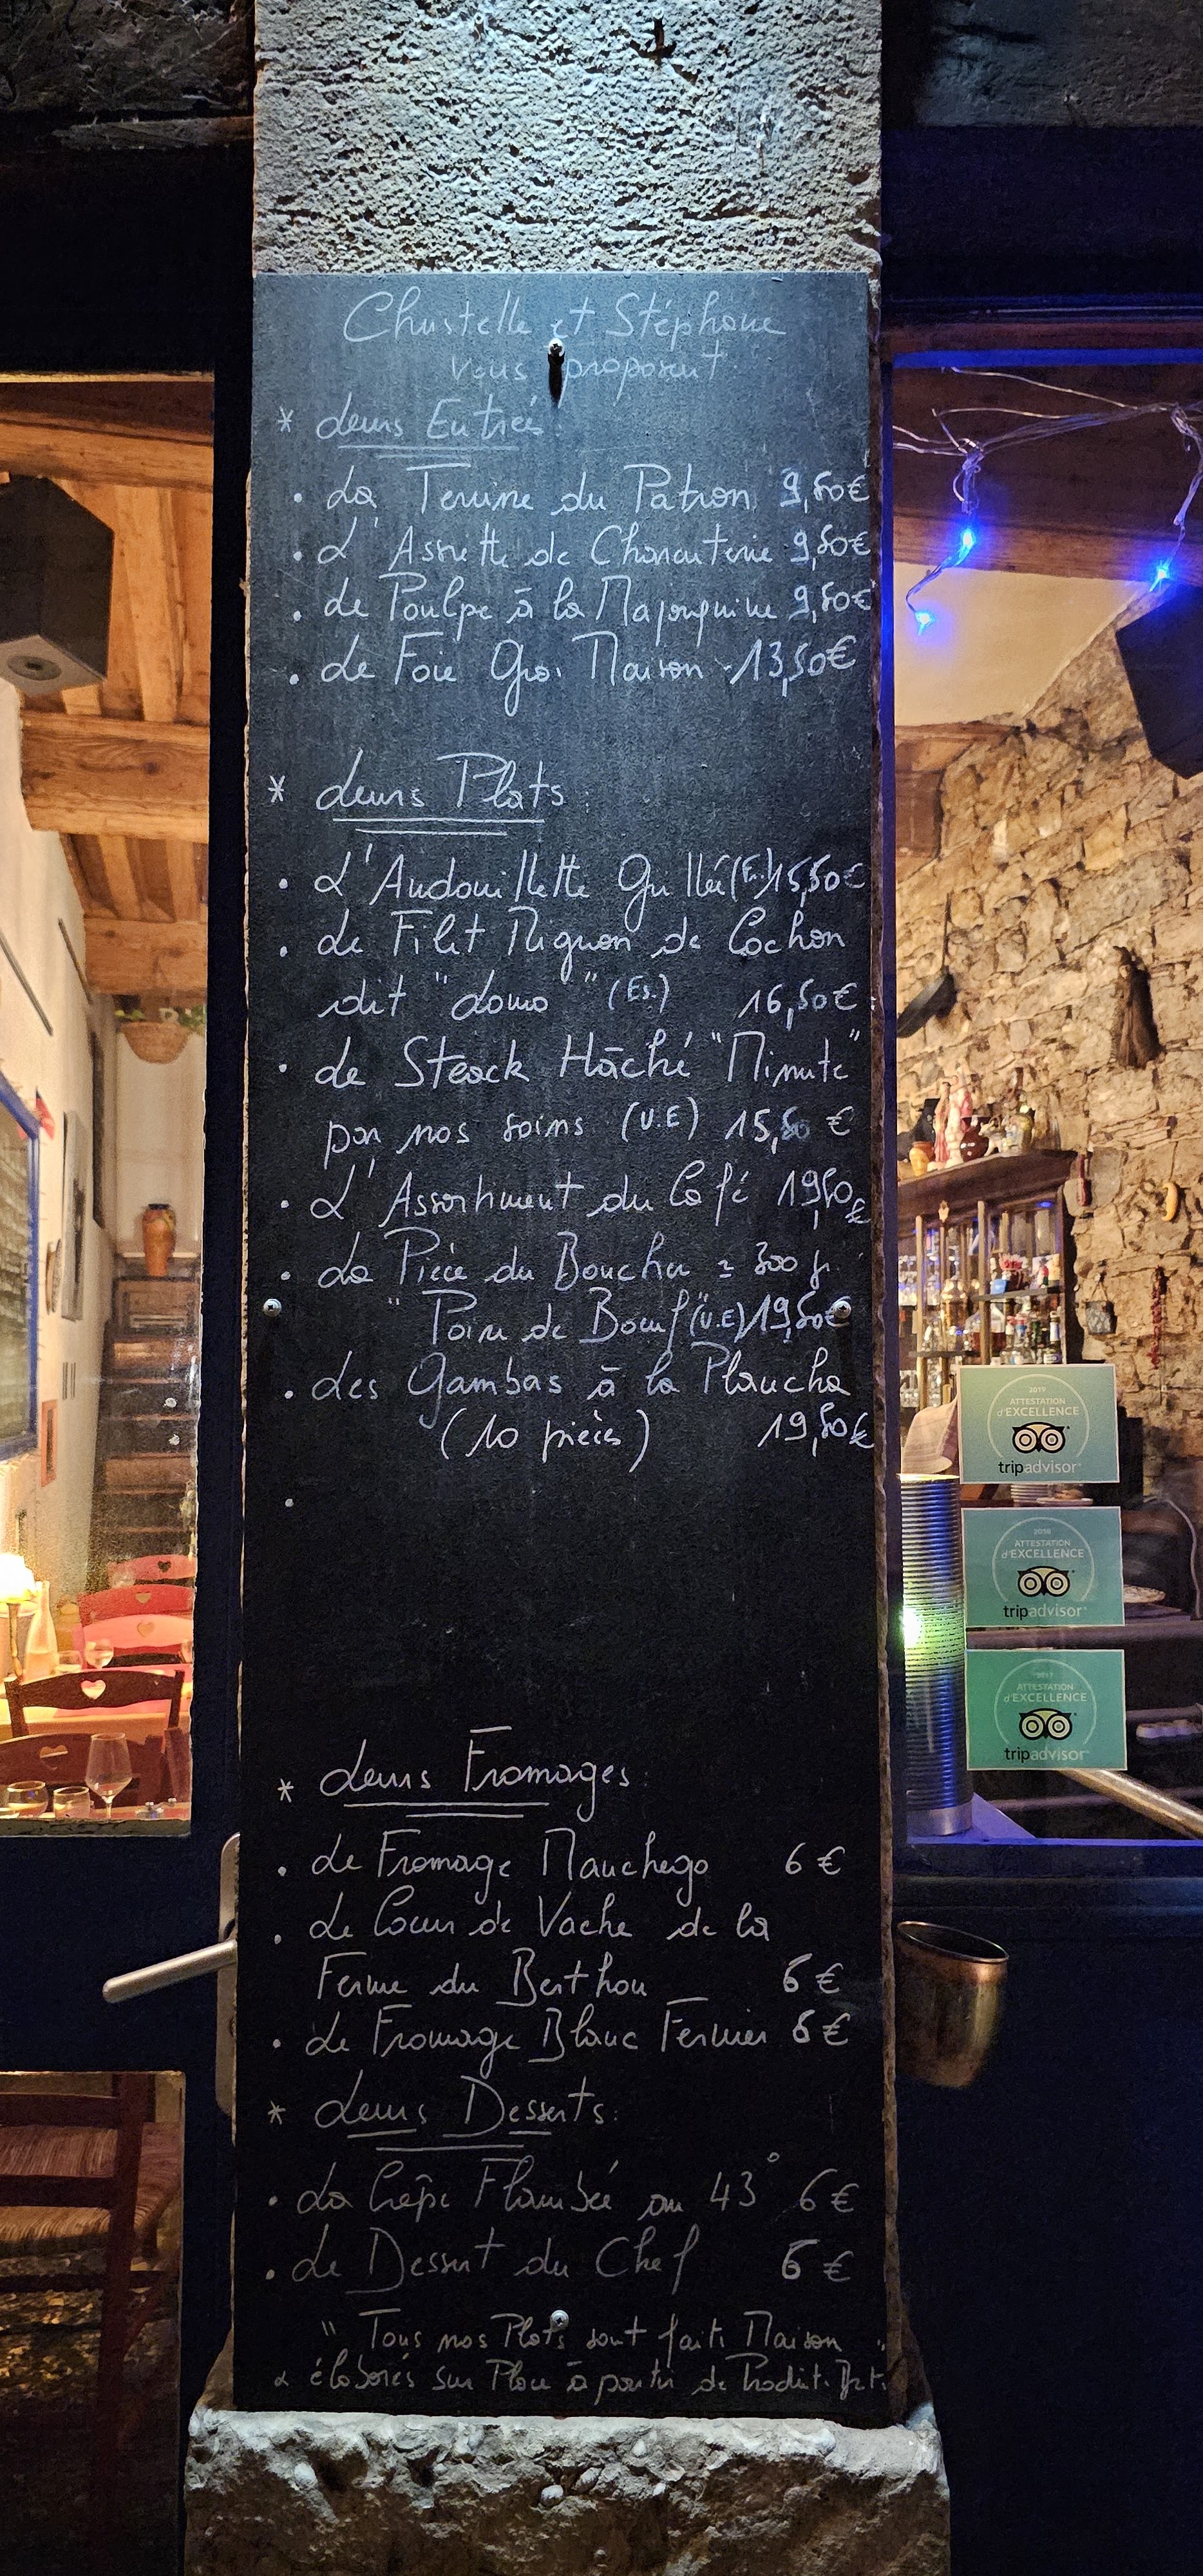 Christelle et Stéphane
vous proposent
* Leurs Entrées :
. La Terrine du Patron 9,50€
. L'Assiette de Charcuterie 9,50€
. Le Poulpe à la Majorquine 9,50€
. Le Foie Gras Maison 13,50€
* Leurs Plats :
. L'Andouillette Grillée (F.) 15,50€
. Le Filet Mignon de Cochon
dit "Lomo" (Es.) 16,50€
. Le Steack Hâché "Minute"
par nos soins (U.E) 15,50 €
. L'Assortiment du Café 19,50€
. La Pièce du Boucher = 300 gr.
"Poire de Boeuf" (U.E) 19,50€
. Les Gambas à la Plancha
(10 pièces) 19,50€
.
* Leurs Fromages :
. Le Fromage Manchego 6 €
. Le Coeur de Vache de la
Ferme du Berthou 6 €
. Le Fromage Blanc Fermier 6 €
* Leurs Desserts :
. La Crêpe Flambée au 43° 6 €
. Le Dessert du Chef 6 €
" Tous nos Plats sont faits Maison "
& élaborés sur Place à partir de Produits
2019
ATTESTATION
d'EXCELLENCE
tripadvisor
2018
ATTESTATION
d'EXCELLENCE
tripadvisor
2017
ATTESTATION
d'EXCELLENCE
tripadvisor